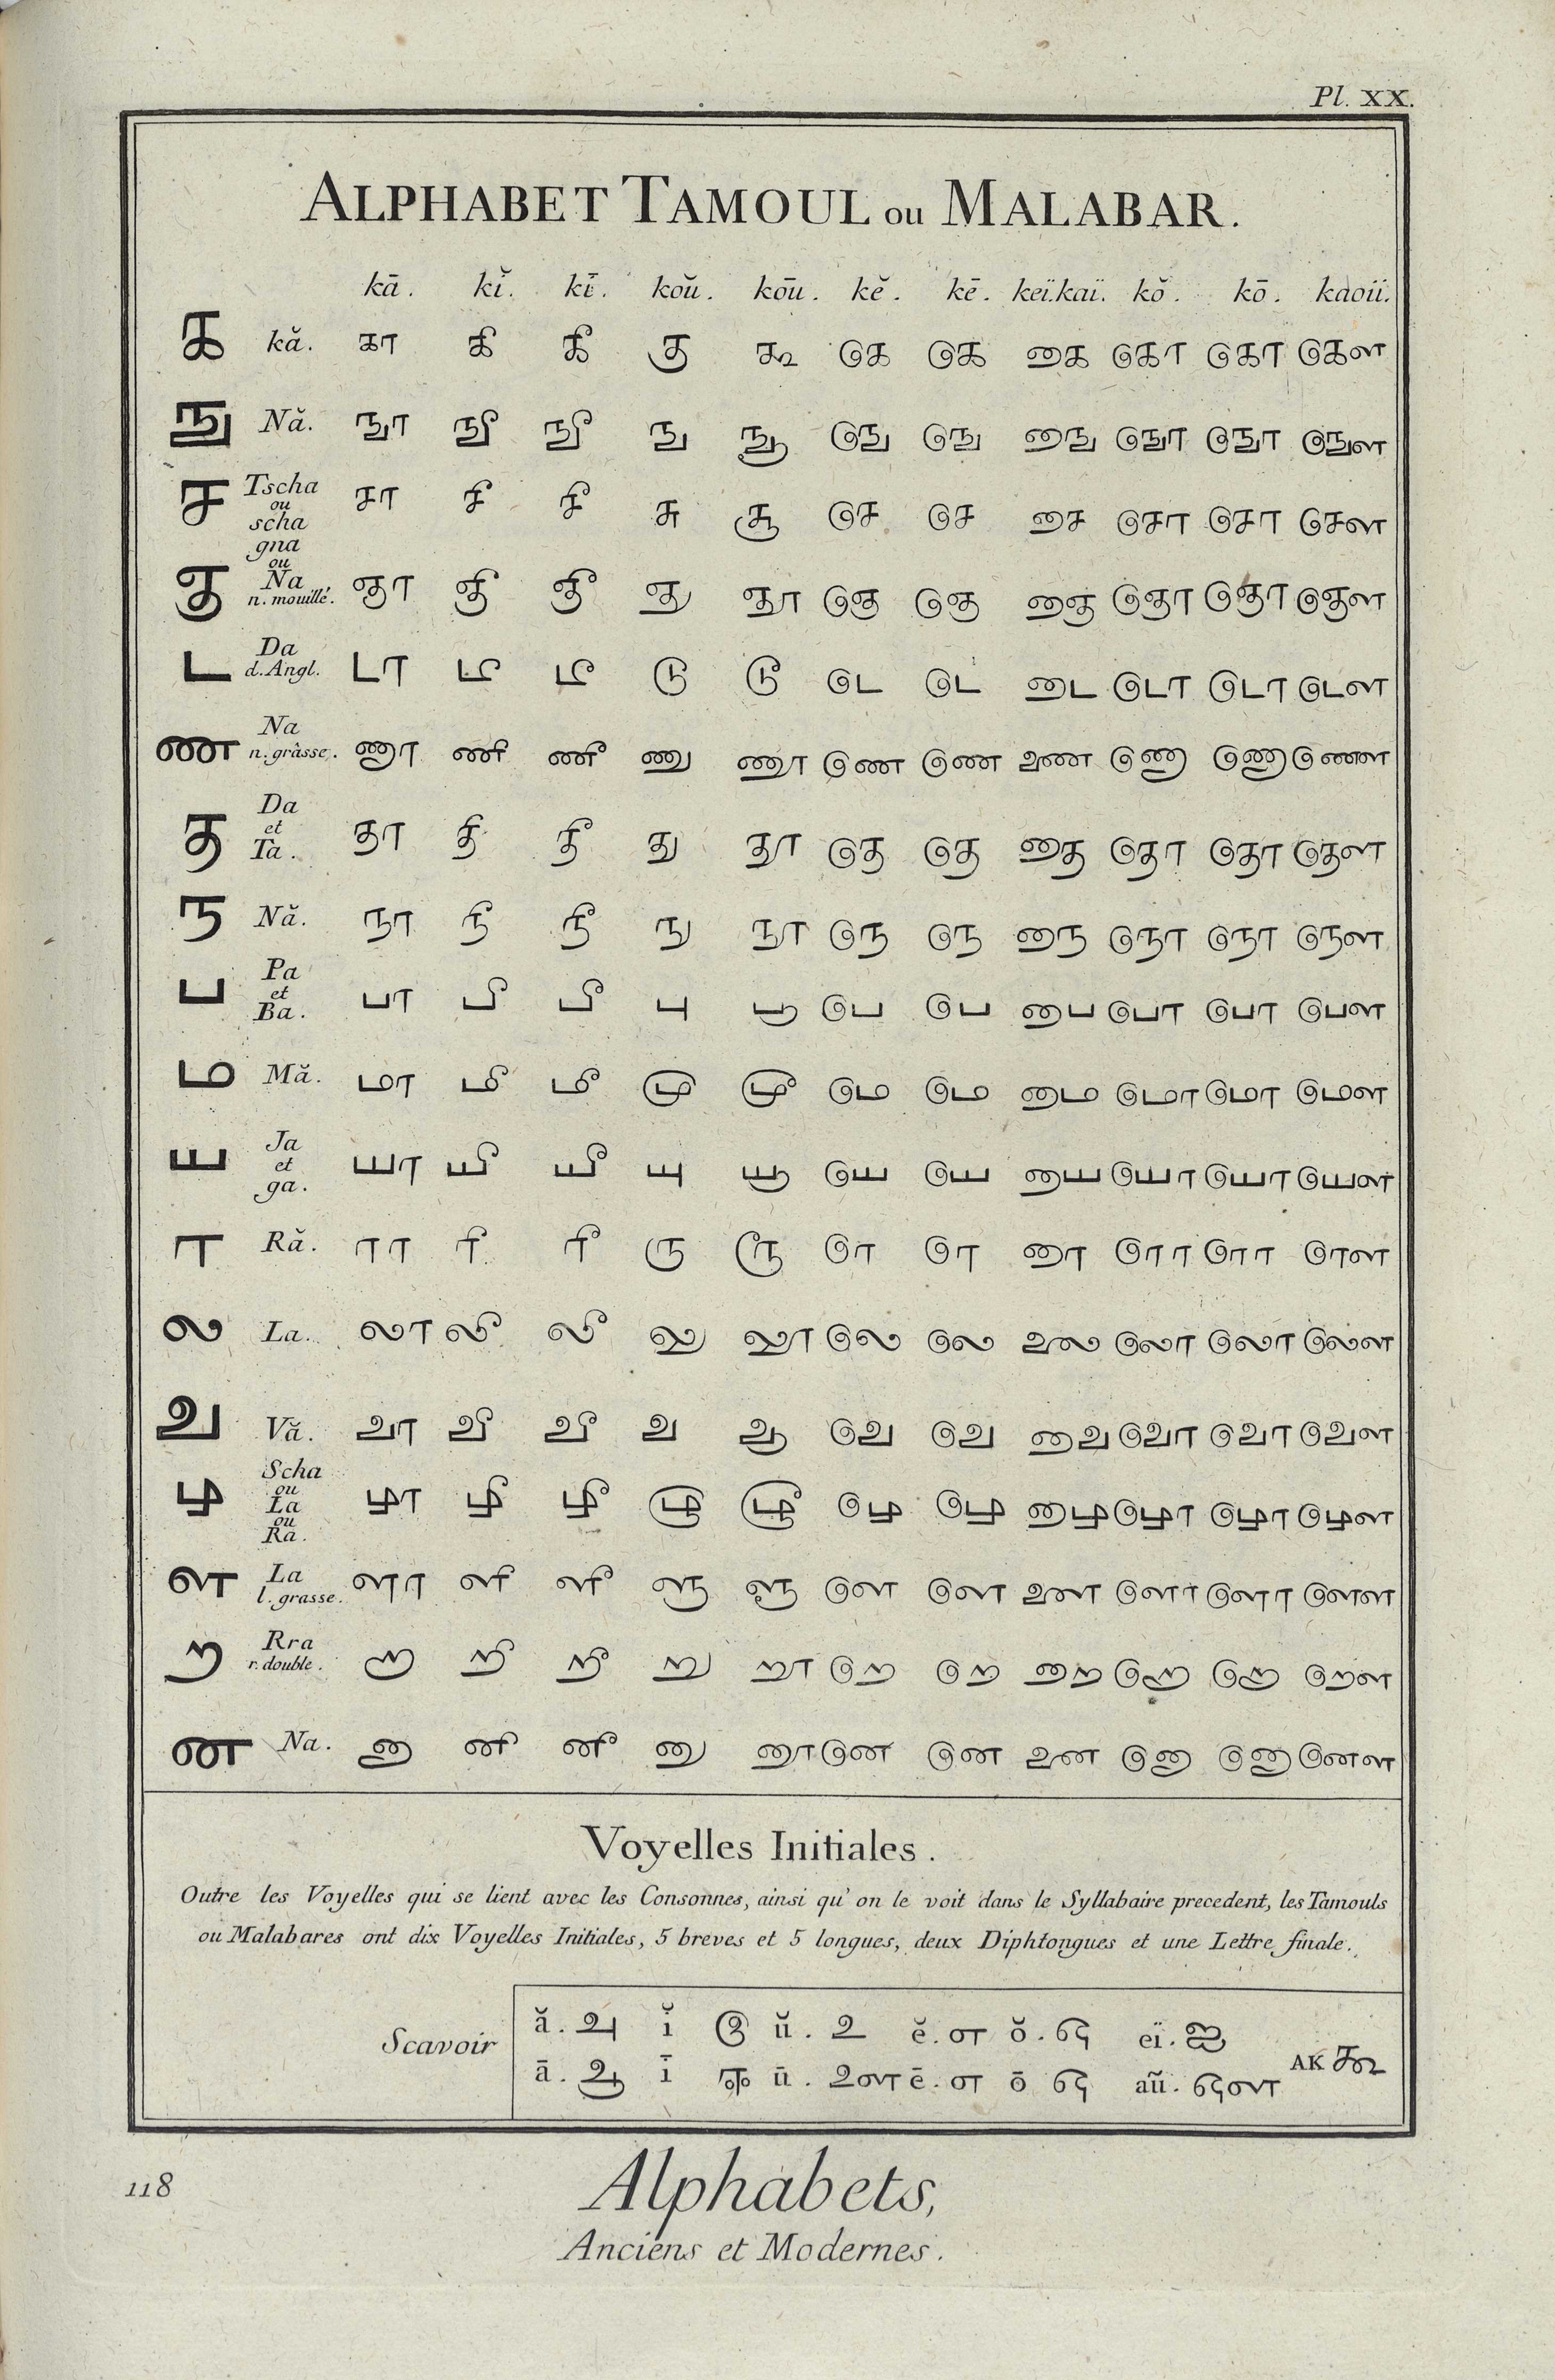 Pl. XX.
ALPHABET TAMOUL ou MALABAR.
kā. kĭ. kī. koŭ. koū. kĕ. kē. keï.kaï. kŏ. kō. kaoü.
க kă. கா கி கீ கு கூ கெ கெ கை கொ கொ கௌ
ங Nă. ஙா ஙி ஙீ ஙு ஙூ ஙெ ஙெ ஙை ஙொ ஙொ ஙௌ
ச Tscha ou scha சா சி சீ சு சூ செ செ சை சொ சொ சௌ
ஞ gna ou Na n. mouillé. ஞா ஞி ஞீ ஞு ஞூ ஞெ ஞெ ஞை ஞொ ஞொ ஞௌ
ட Da d. Angl. டா டி டீ டு டூ டெ டெ டை டொ டொ டௌ
ண Na n. grâsse. ணா ணி ணீ ணு ணூ ணெ ணெ ணை ணொ ணொ ணௌ
த Da et Ta. தா தி தீ து தூ தெ தெ தை தொ தொ தௌ
ந Nă. நா நி நீ நு நூ நெ நெ நை நொ நொ நௌ
ப Pa et Ba. பா பி பீ பு பூ பெ பெ பை பொ பொ பௌ
ம Mă. மா மி மீ மு மூ மெ மெ மை மொ மொ மௌ
ய Ja et ga. யா யி யீ யு யூ யெ யெ யை யொ யொ யௌ
ர Ră. ரா ரி ரீ ரு ரூ ரெ ரெ ரை ரொ ரொ ரௌ
ல La. லா லி லீ லு லூ லெ லெ லை லொ லொ லௌ
வ Vă. வா வி வீ வு வூ வெ வெ வை வொ வொ வௌ
ழ Scha ou La ou Ra. ழா ழி ழீ ழு ழூ ழெ ழெ ழை ழொ ழொ ழௌ
ள La l. grasse. ளா ளி ளீ ளு ளூ ளெ ளெ ளை ளொ ளொ ளௌ
ற Rra r. double. றா றி றீ று றூ றெ றெ றை றொ றொ றௌ
ன Na. னா னி னீ னு னூ னெ னெ னை னொ னொ னௌ
Voyelles Initiales.
Outre les Voyelles qui se lient avec les Consonnes, ainsi qu'on le voit dans le Syllabaire precedent, les Tamouls
ou Malabares ont dix Voyelles Initiales, 5 breves et 5 longues, deux Diphtongues et une Lettre finale.
Scavoir
ă. அ ĭ இ ŭ. உ ĕ. எ ŏ. ஒ eï. ஐ
ā. ஆ ī ஈ ū. ஊ ē. எ ō ஒ aŭ. ஔ
AK ஃ
118
Alphabets,
Anciens et Modernes.